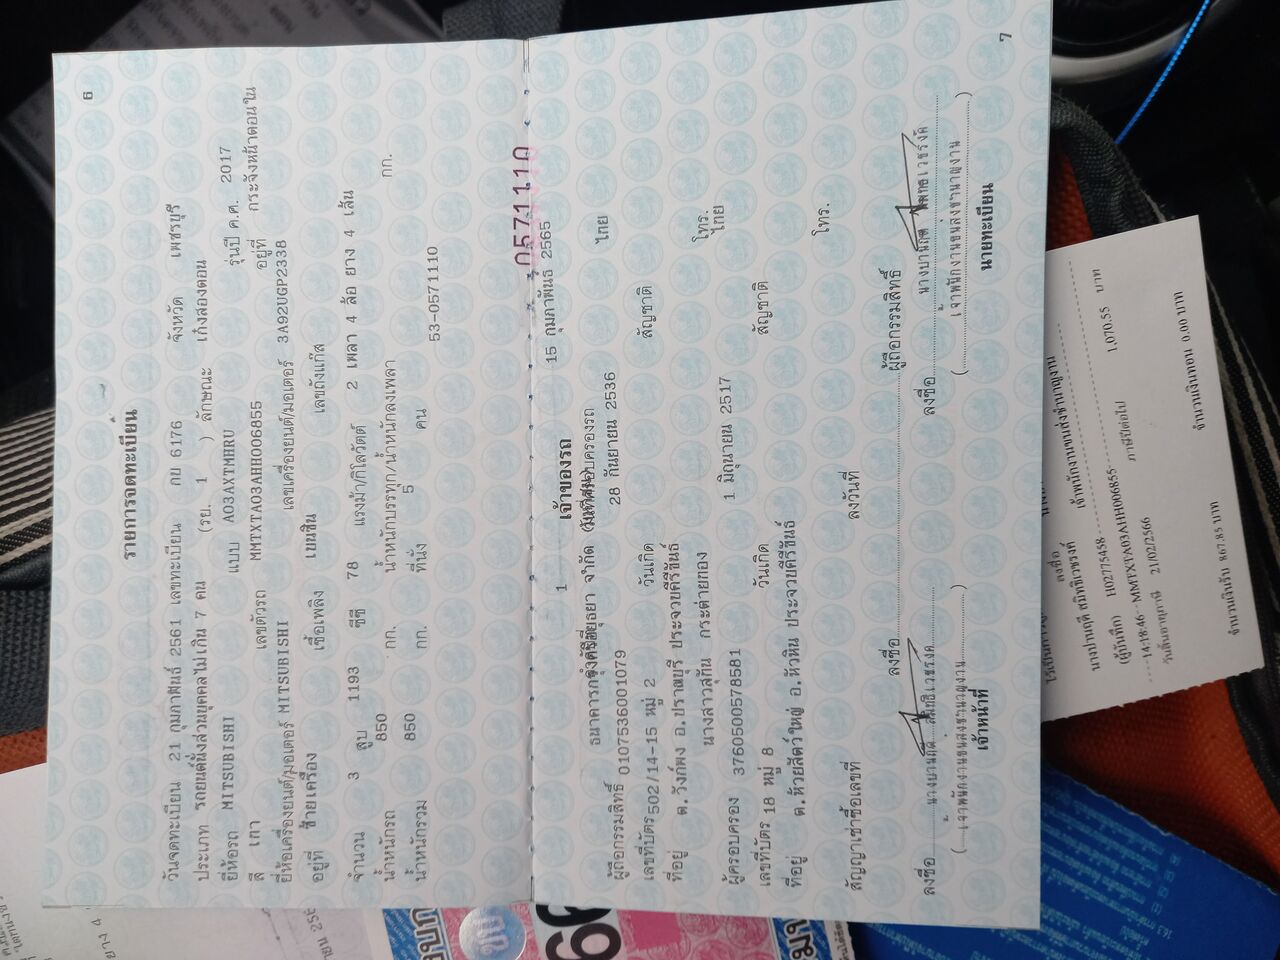 6
รายการจดทะเบียน
วันจดทะเบียน 21 กุมภาพันธ์ 2561 เลขทะเบียน กย 6176 จังหวัด เพชรบุรี
ประเภท รถยนต์นั่งส่วนบุคคลไม่เกิน 7 คน (รย. 1 ) ลักษณะ เก๋งสองตอน
ยี่ห้อรถ MITSUBISHI แบบ A03AXTMHRU รุ่นปี ค.ศ. 2017
สี เทา เลขตัวรถ MMTXTA03AHH006855 อยู่ที่ กระจังหน้าตอนใน
ยี่ห้อเครื่องยนต์/มอเตอร์ MITSUBISHI เลขเครื่องยนต์/มอเตอร์ 3A92UGP2338
อยู่ที่ ซ้ายเครื่อง เชื้อเพลิง เบนซิน เลขถังแก๊ส
จำนวน 3 สูบ 1193 ซีซี 78 แรงม้า/กิโลวัตต์ 2 เพลา 4 ล้อ ยาง 4 เส้น
น้ำหนักรถ 850 กก. น้ำหนักบรรทุก/น้ำหนักลงเพลา กก.
น้ำหนักรวม 850 กก. ที่นั่ง 5 คน 53-0571110
0571110
1 เจ้าของรถ 15 กุมภาพันธ์ 2565
ผู้ถือกรรมสิทธิ์ ธนาคารกรุงศรีอยุธยา จำกัด
0107536001079 28 กันยายน 2536 ไทย
เลขที่บัตร 502/14-15 หมู่ 2 วันเกิด สัญชาติ
ที่อยู่ ต.วังก์พง อ.ปราณบุรี ประจวบคีรีขันธ์
นางสาวสุกัน กระต่ายทอง โทร.
ผู้ครอบครอง 3760500578581 1 มิถุนายน 2517 ไทย
เลขที่บัตร 18 หมู่ 8 วันเกิด สัญชาติ
ที่อยู่ ต.ห้วยสัตว์ใหญ่ อ.หัวหิน ประจวบคีรีขันธ์
โทร.
สัญญาเช่าซื้อเลขที่ ลงวันที่
ลงชื่อ ผู้ถือกรรมสิทธิ์
ลงชื่อ ลงชื่อ
(เจ้าพนักงานขนส่งชำนาญงาน) (เจ้าพนักงานขนส่งชำนาญงาน)
เจ้าหน้าที่ นายทะเบียน
7
ลงชื่อ
นางปานฤดี สมิทธิเวชรงค์ เจ้าพนักงานขนส่งชำนาญงาน
(ผู้บันทึก) H02775458
14:18:46--MMTXTA03AHH006855
วันสิ้นอายุภาษี 21/02/2566 ภาษีปีต่อไป 1,070.55 บาท
จำนวนเงินรับ 867.85 บาท จำนวนเงินทอน 0.00 บาท